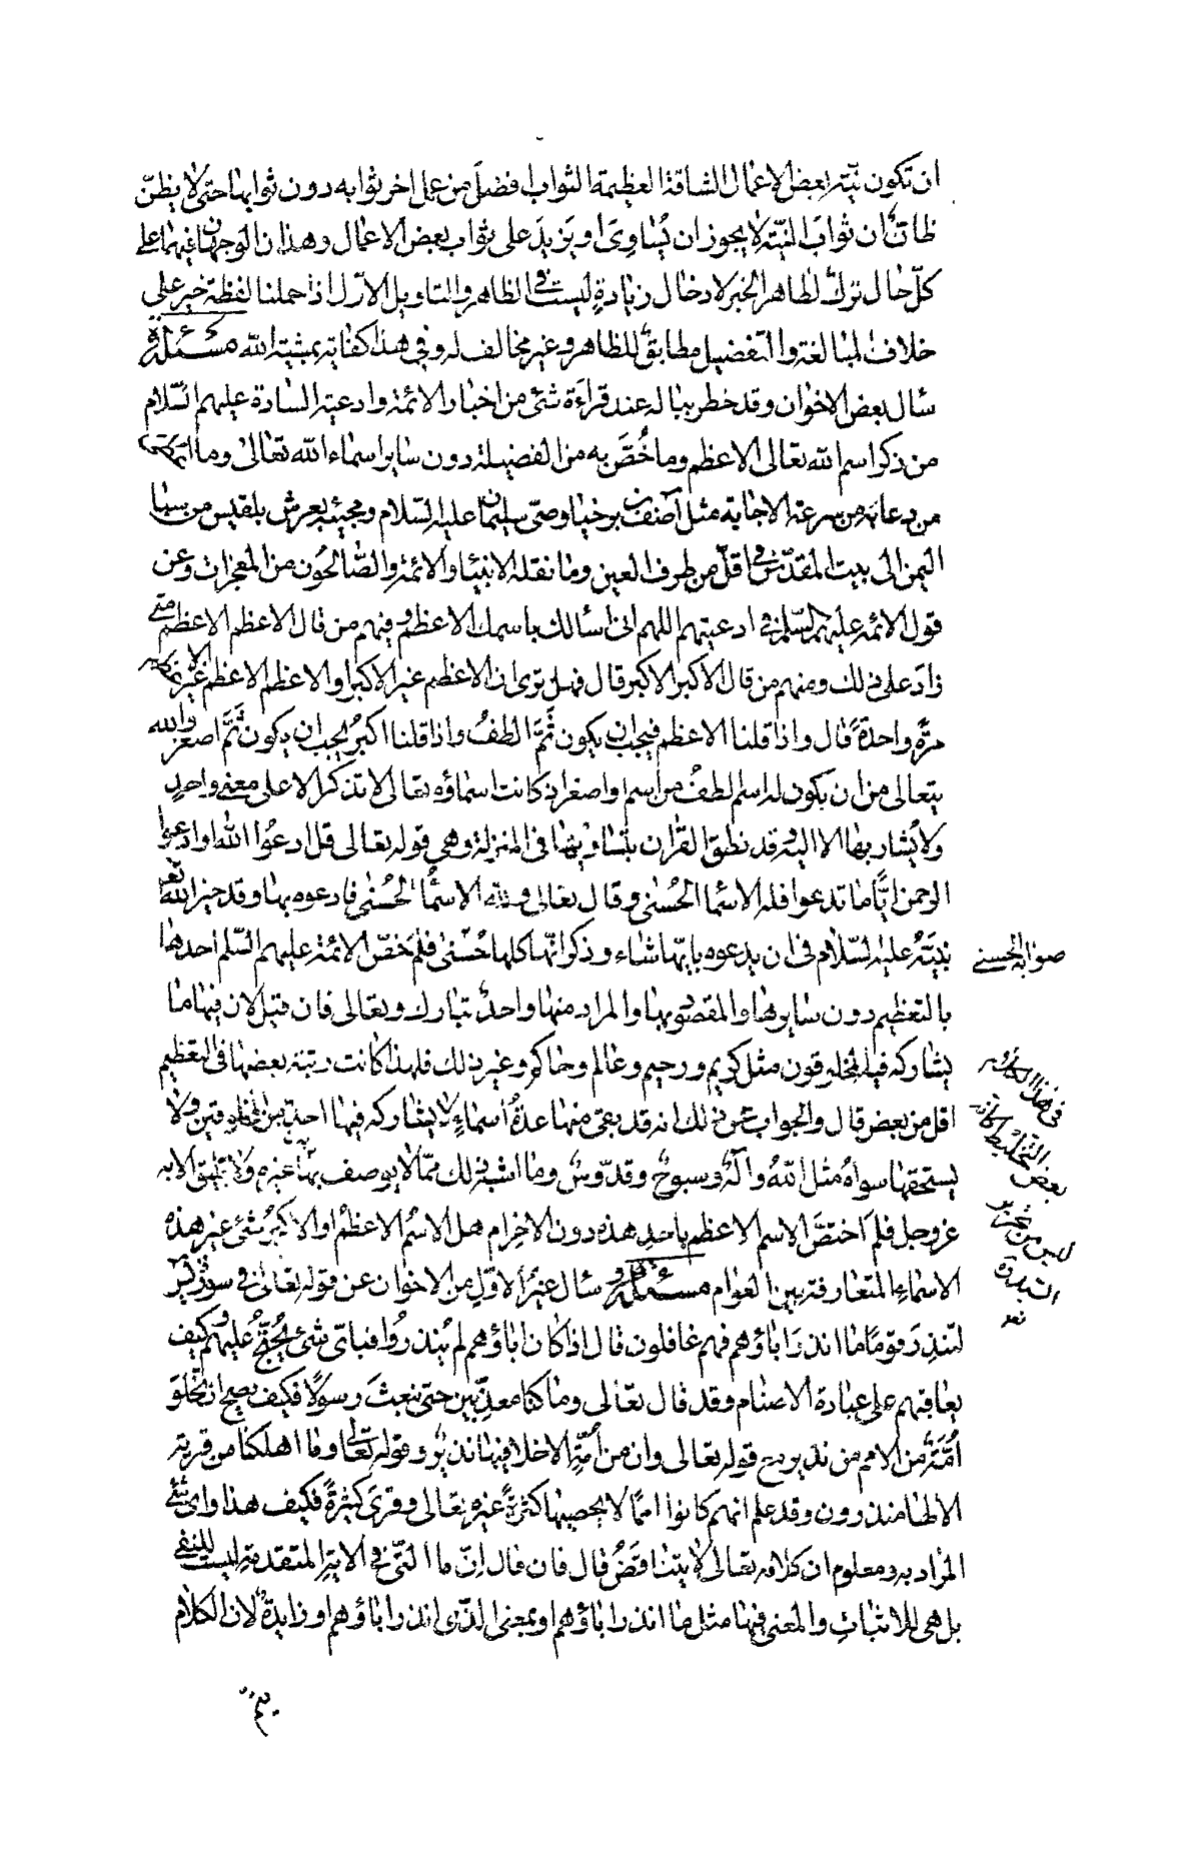 ان تكون نيّة بعض الاعمال الشاقة العظيمة الثواب افضل من عمل اخر ثوابه دون ثوابها حتى لا يظنّ
ظانّ ان ثوابَ النيّة لا يجوز ان يُساوِىَ او يَزيدَ على ثواب بعض الاعمال وهذان الوجهان فيهما على
كلّ حال ترك لظاهر الخبر لادخال زيادةٍ ليست فى الظاهر والتاويل الاوّل اذا حملنا لفظة خير على
خلاف المبالغة والتفضيل مطابقٌ للظاهر وغير مخالف له وفى هذا كفاية بمشيّة الله مسئلة و
سأل بعض الاخوان وقد خطر بباله عند قراءَة شئ من اخبار الائمة وادعية السادة عليهم السّلام
من ذكر اسم الله تعالى الاعظم وما خُصَّ به من الفضيلة دون سائر اسماء الله تعالى وما
من دعا به من سرعة الاجابة مثل آصف بن برخيا وصىّ سليمان عليه السّلام ومجيئه بعرش بلقيس من سبا
اليمن الى بيت المقدّس فى اقلّ من طرف العين وما نقله الانبيا والائمة والصّالحُون من المعجزات وعن
قول الائمة عليهم السّلم فى ادعيتهم اللهم انى اسألك باسمك الاعظم وفيهم من قال الاعظم الاعظم متى
زادَ على ذلك ومنهم من قال الاكبر الاكبر قال فهل ترى ان الاعظم غير الاكبر او الاعظم الاعظم غير
مرّةً واحدةً قال واذا قلنا الاعظم فيجب ان يكون ثَمَّ الطفُ واذا قلنا اكبرُ يجب ان يكون ثَمَّ اصغر والله
يتعالى من ان يكون له اسم الطفُ من اسم واصغر اذ كانت اسماؤه تعالى لا تذكر الا على معنى واحدٍ
ولا يُشار بها الا اليه وقد نطق القرٰان بتساويها فى المنزلة وهى قوله تعالى قل ادعُوا الله او ادعوا
الرحمن ايًّا ما تدعوا فله الاسما الحُسنى وقال تعالى ولله الاسمٓا الحُسْنى فادعوه بها وقد خيّر الله تعٰ
نبيَّهُ عليه السّلام فى ان يدعوه بايّها شاء وذكر انّها كلها حُسْنى فلم خَصّ الائمة عليهم السّلم احدها
صوابه الحسنى
بالتعظيم دون سايرها والمقصود بها والمراد منها واحدٌ تبارك وتعالى فان قيل لان فيها ما
يشاركه فيه المخلوقون مثل كريم ورحيم وعالم وحاكم وغير ذلك فلهذا كانت رتبة بعضها فى التعظيم
اقل من بعض قال والجواب عن ذلك انه قد بقى منها عدة اسماءٍ لا يشاركه فيها احد من المخلوقين ولا
يستحقها سواهُ مثل اللهُ وآلهٌ وسبوحٌ وقدّوسٌ وما اشبه ذلك ممّا لا يوصف بها غيره ولا تليق الا به
عز وجل فلم اختصّ الاسم الاعظم باحدِ هذه دون الاخرام هل الاسمُ الاعظمُ او الاكبرُ شئ غير هذه
الاسماءِ المتعارفة بين العوام مسئلة و سأل غيرُ الاوّلِ من الاخوان عن قوله تعالى فى سورة يس
لتنذرَ قومًا ما انذرَ اباؤهم فهم غافلون قال اذا كان اباؤهم لم يُنذرُوا فباىّ شئ يُحتجُّ عليهم وكيف
يعاقبهم على عبادة الاصنام وقد قال تعالى وما كنّا معذّبين حتى نبعثَ رسولًا فكيف يصح ان تخلوَ
اُمّةٌ من الامم من نذير مع قوله تعالى وان من اُمّةٍ الا خلا فيها نذيرٌ وقوله تعالى وما اهلكنا من قرية
الا لها منذرون وقد علم انهم كانوا اممًا لا يحصيها كثرةً غيره تعالى وقرىً كثيرةً فكيف هذا واى شئ
المراد به ومعلوم ان كلامه تعالى لا يتناقضُ قال فان قال انّ ما التى فى الاية المتقدمة ليست للنفى
بل هى للاثباتِ والمعنى فيها مثل ما انذر اباؤهم او بمعنى الذى انذر اباؤهم او زايدةٌ لان الكلام